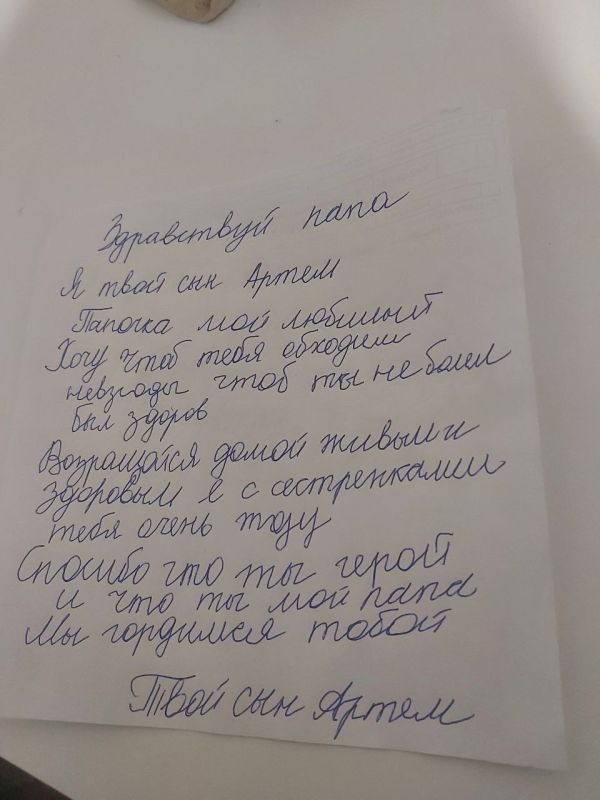 Здравствуй папа
Я твой сын Артем
Папочка мой любимый
Хочу чтоб тебя обходили
невзгоды чтоб ты не болел
был здоров
Возращайся домой живым и
здоровым я с сестренками
тебя очень жду
Спосибо что ты герой
и что ты мой папа
Мы гордимся тобой
Твой сын Артем